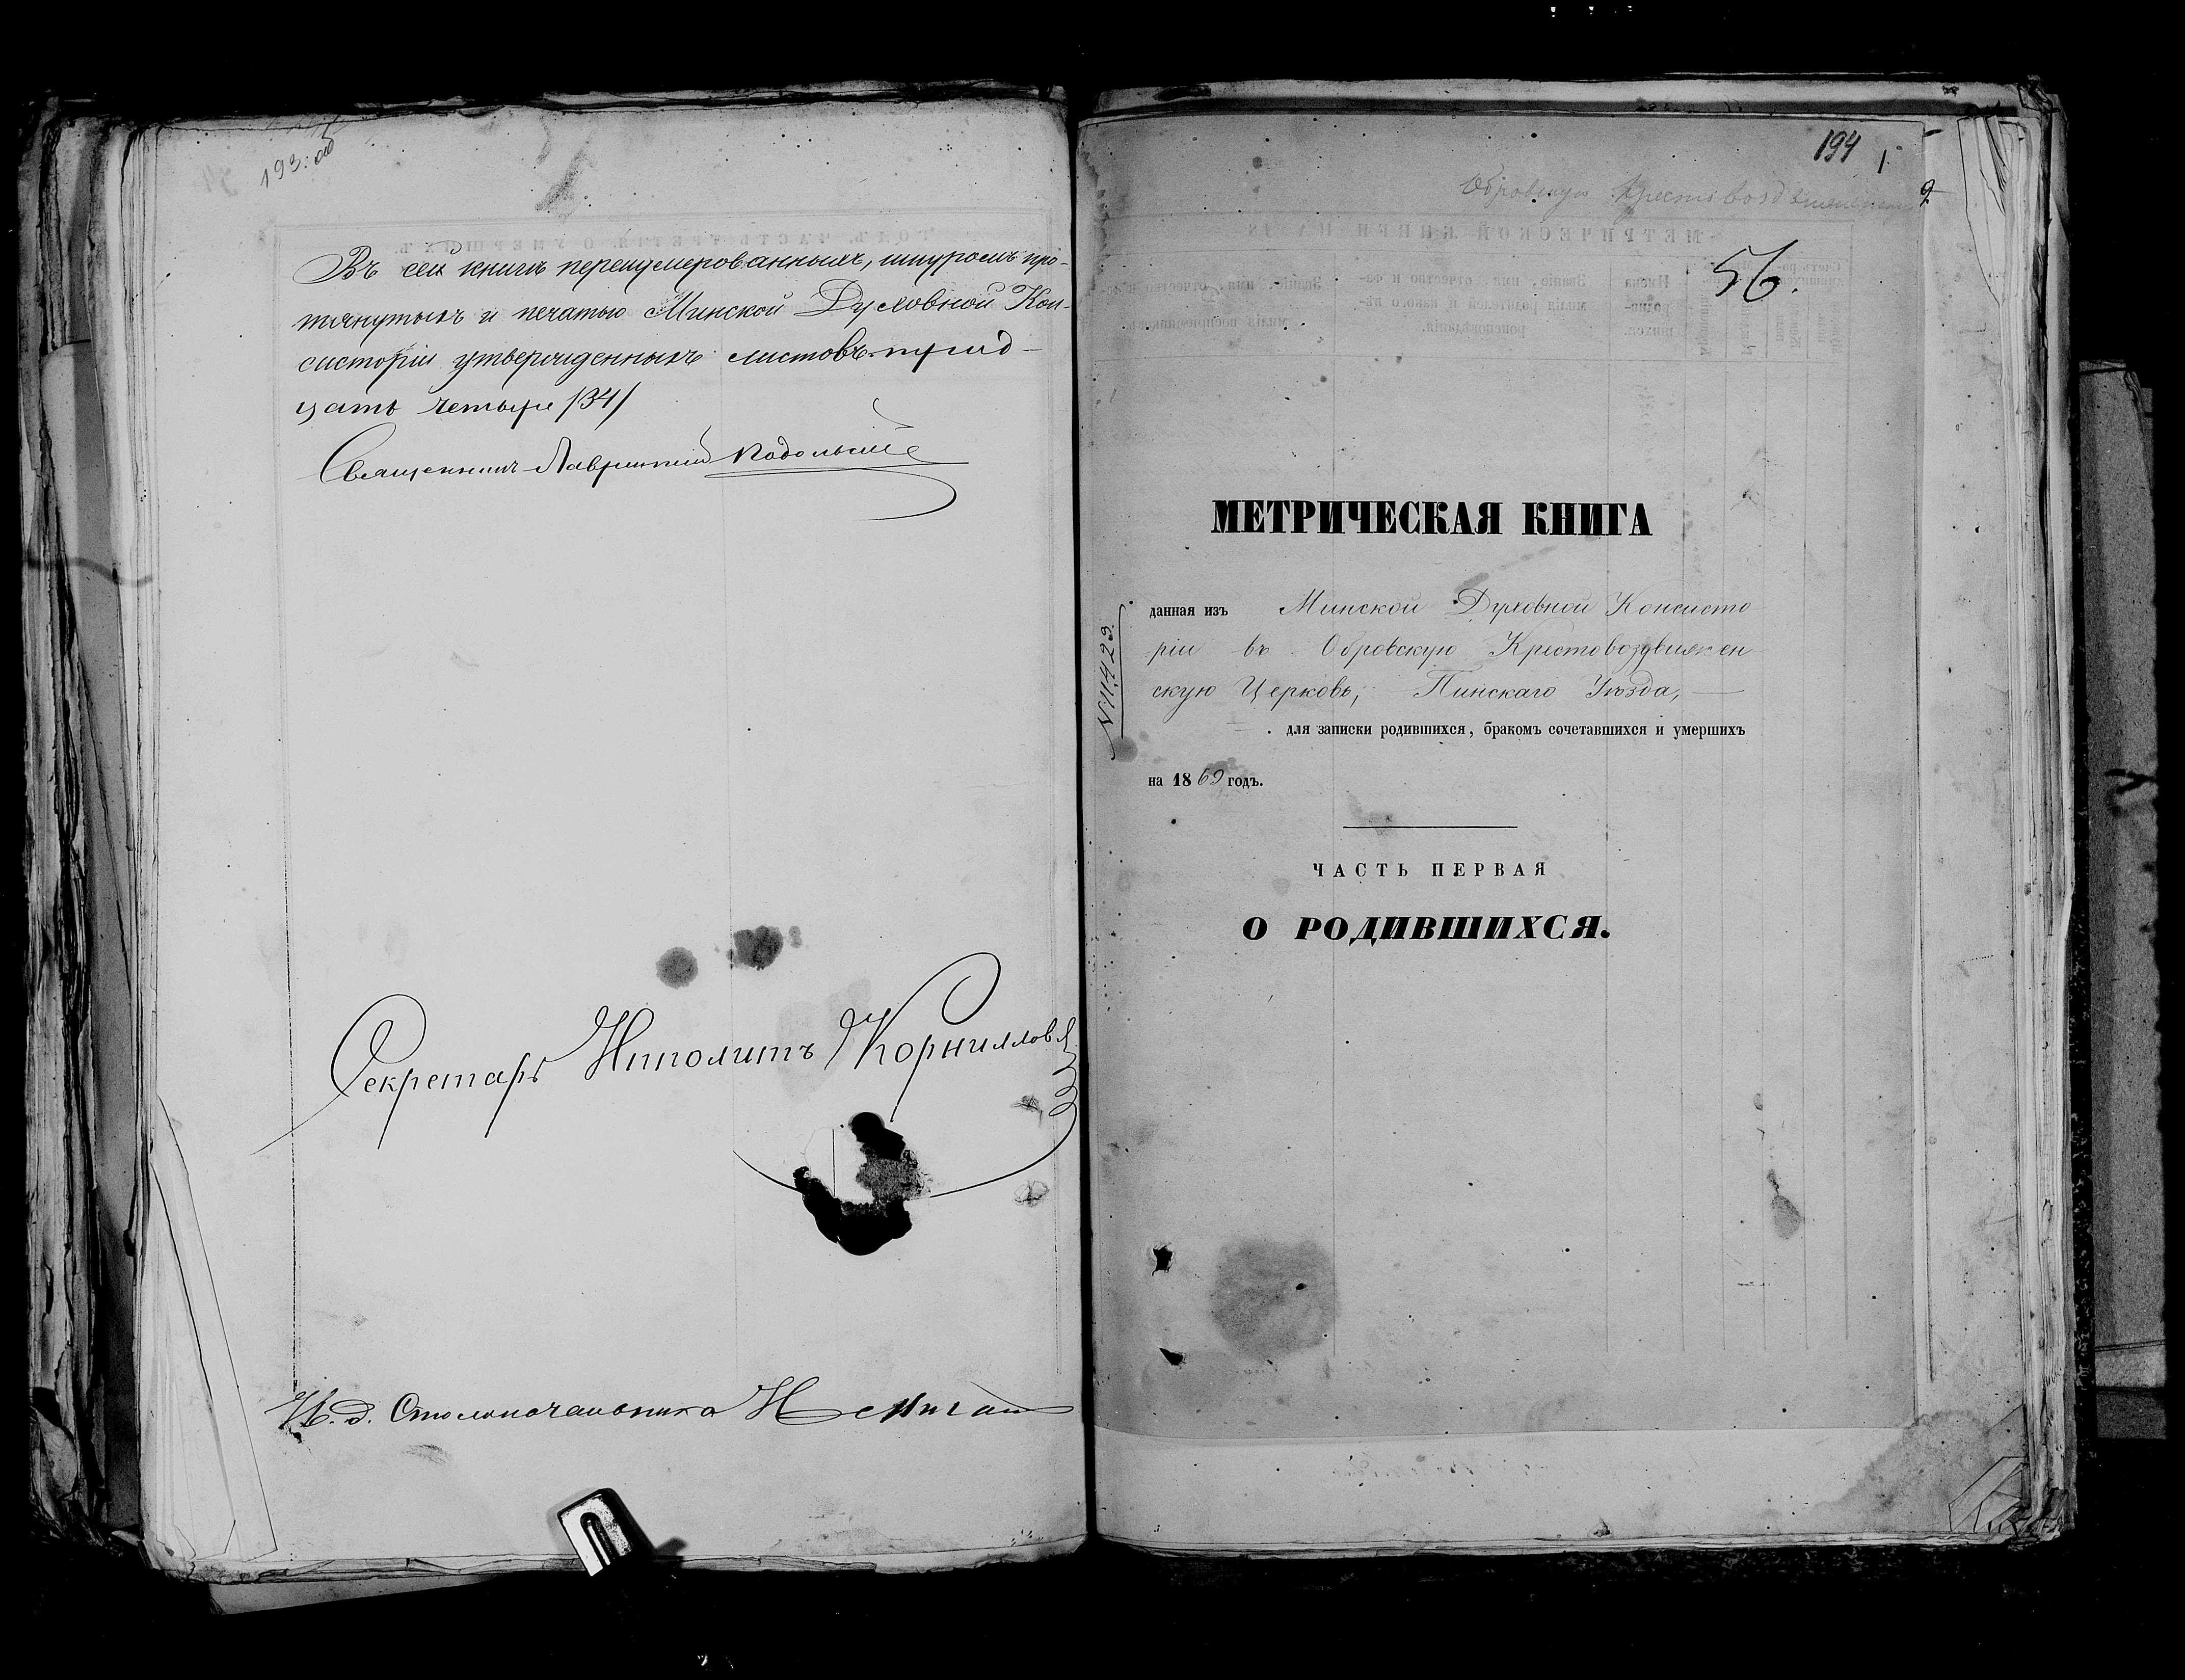 193: об
Въ сей книгѣ перенумерованныхъ, шнуромъ про-
тянутыхъ и печатью Минской Духовной Кон-
систоріи утвержденныхъ листовъ трид-
цать четыре /34/
Священникъ Лаврентій Подольскій
Секретарь Ипполитъ Корнилловъ
И. д. Столоначальника
194
1
Обровскую Крестовоздвиженскую
56.
МЕТРИЧЕСКАЯ КНИГА
данная изъ Минской Духовной Консисто
ріи въ Обровскую Крестовоздвижен
скую Церковь, Пинскаго Уѣзда, —
для записки родившихся, бракомъ сочетавшихся и умершихъ
на 1869 годъ.
№ 11,423.
ЧАСТЬ ПЕРВАЯ
О РОДИВШИХСЯ.